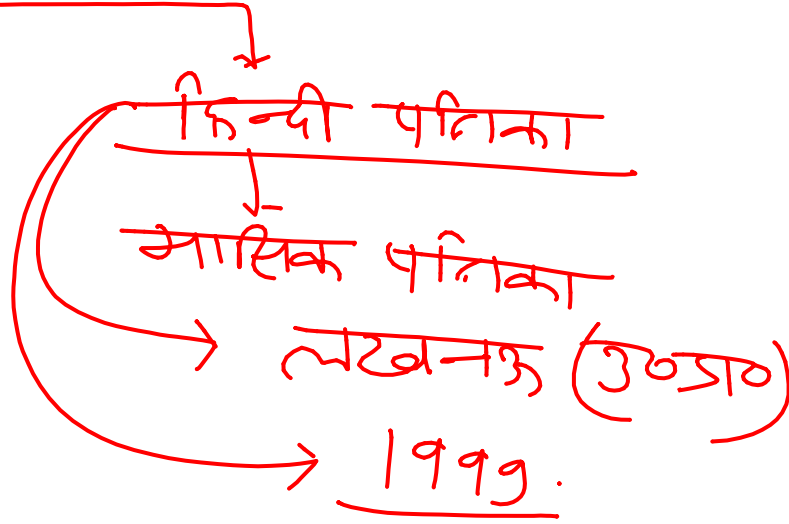 हिन्दी पत्रिका
मासिक पत्रिका
लखनऊ (उ०प्र०)
1999.